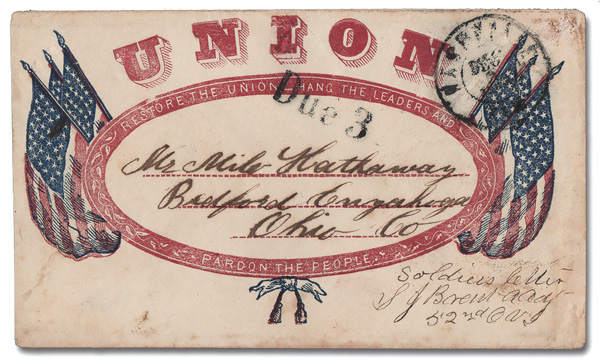 UNION
RESTORE THE UNION HANG THE LEADERS AND
PARDON THE PEOPLE.
NASHVILLE
DEC
Due 3
Mr Milo Hathaway
Bedford Cuyahoga
Ohio Co
Soldiers letter
S J Brent Adjt
52nd OV